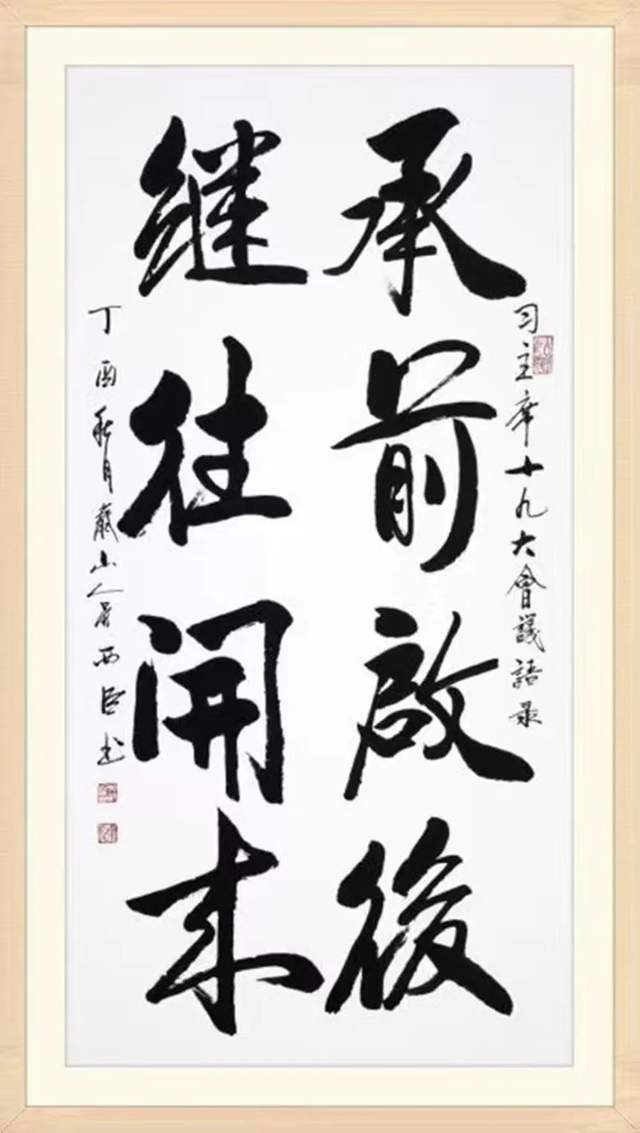 习主席十九大會議語录
承前啟後
继往開来
丁酉秋月 山人 西臣书